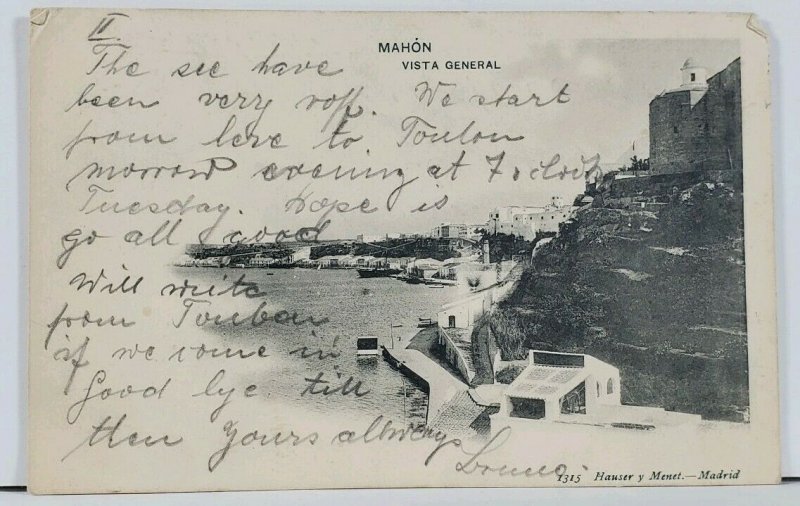 II
MAHÓN
VISTA GENERAL
The see have
been very roff. We start
from here to Toulon
morrow evening at 7 o'clock
Tuesday. Hope is
go all good
Will write
from Toulon
if we come in
Good bye till
then Yours allways
Bruno.
1315 Hauser y Menet.—Madrid